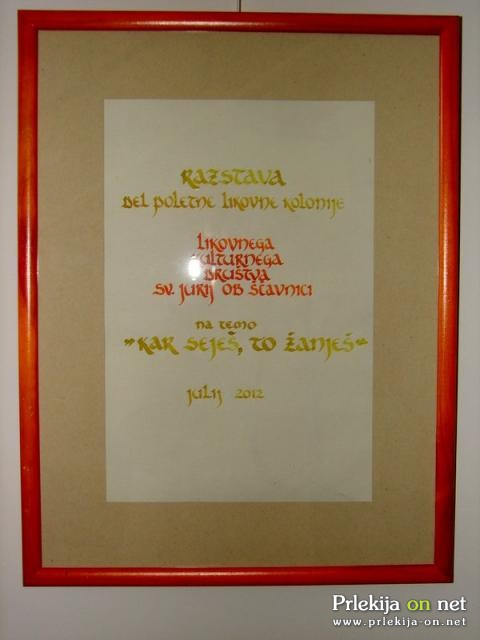 RAZSTAVA
DEL POLETNE LIKOVNE KOLONIJE
LIKOVNEGA
KULTURNEGA
DRUŠTVA
SV. JURIJ OB ŠČAVNICI
NA TEMO
"KAR SEJEŠ, TO ŽANJEŠ"
JULIJ 2012
Prlekija on net
www.prlekija-on.net